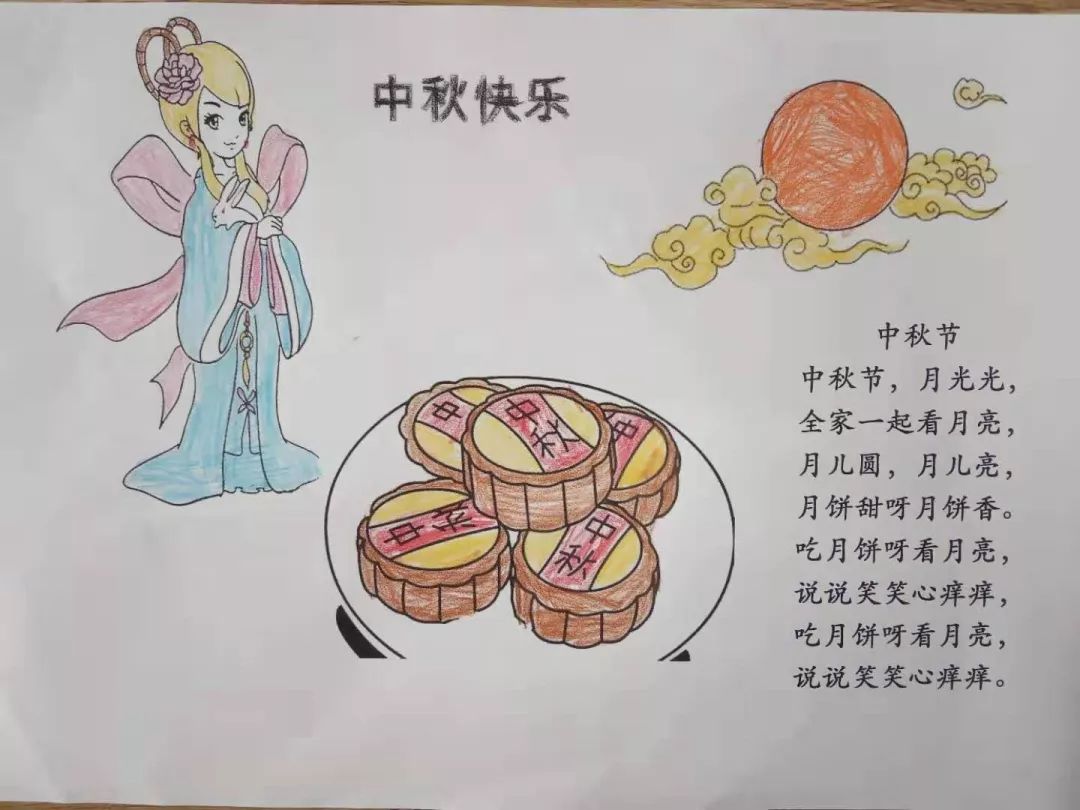 中秋快乐
中秋节
中秋节，月光光，
全家一起看月亮，
月儿圆，月儿亮，
月饼甜呀月饼香。
吃月饼呀看月亮，
说说笑笑心痒痒，
吃月饼呀看月亮，
说说笑笑心痒痒。
中
中秋
中
中秋
中秋